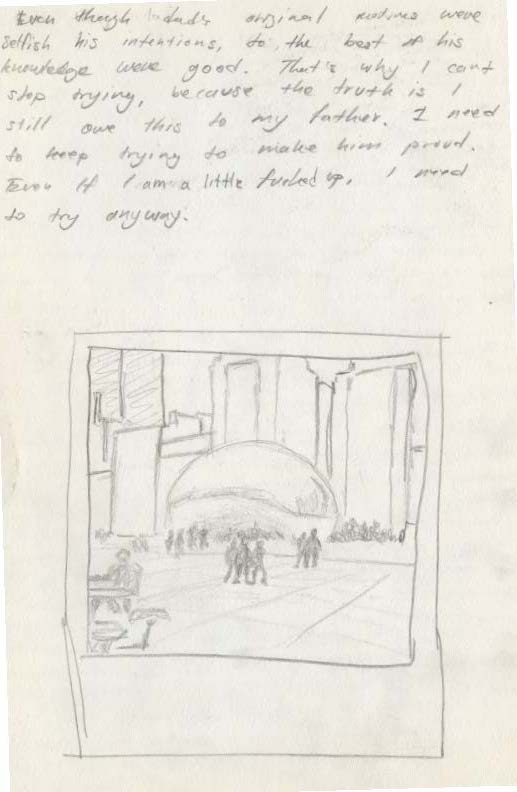 Even though dad's original motives were
selfish his intentions, to the best of his
knowledge were good. That's why I cant
stop trying, because the truth is I
still owe this to my father. I need
to keep trying to make him proud.
Even If I am a little fucked up, I need
to try anyway.